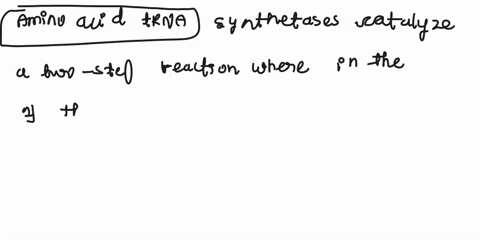 Amino acid tRNA synthetases catalyze
a two-step reaction where in the